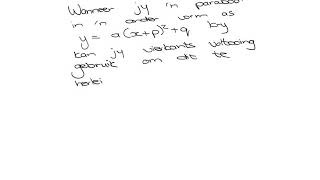 Wanneer jy 'n parabool
in 'n ander vorm as
y = a(x+p)²+q kry
kan jy vierkants voltooing
gebruik om dit te
herlei